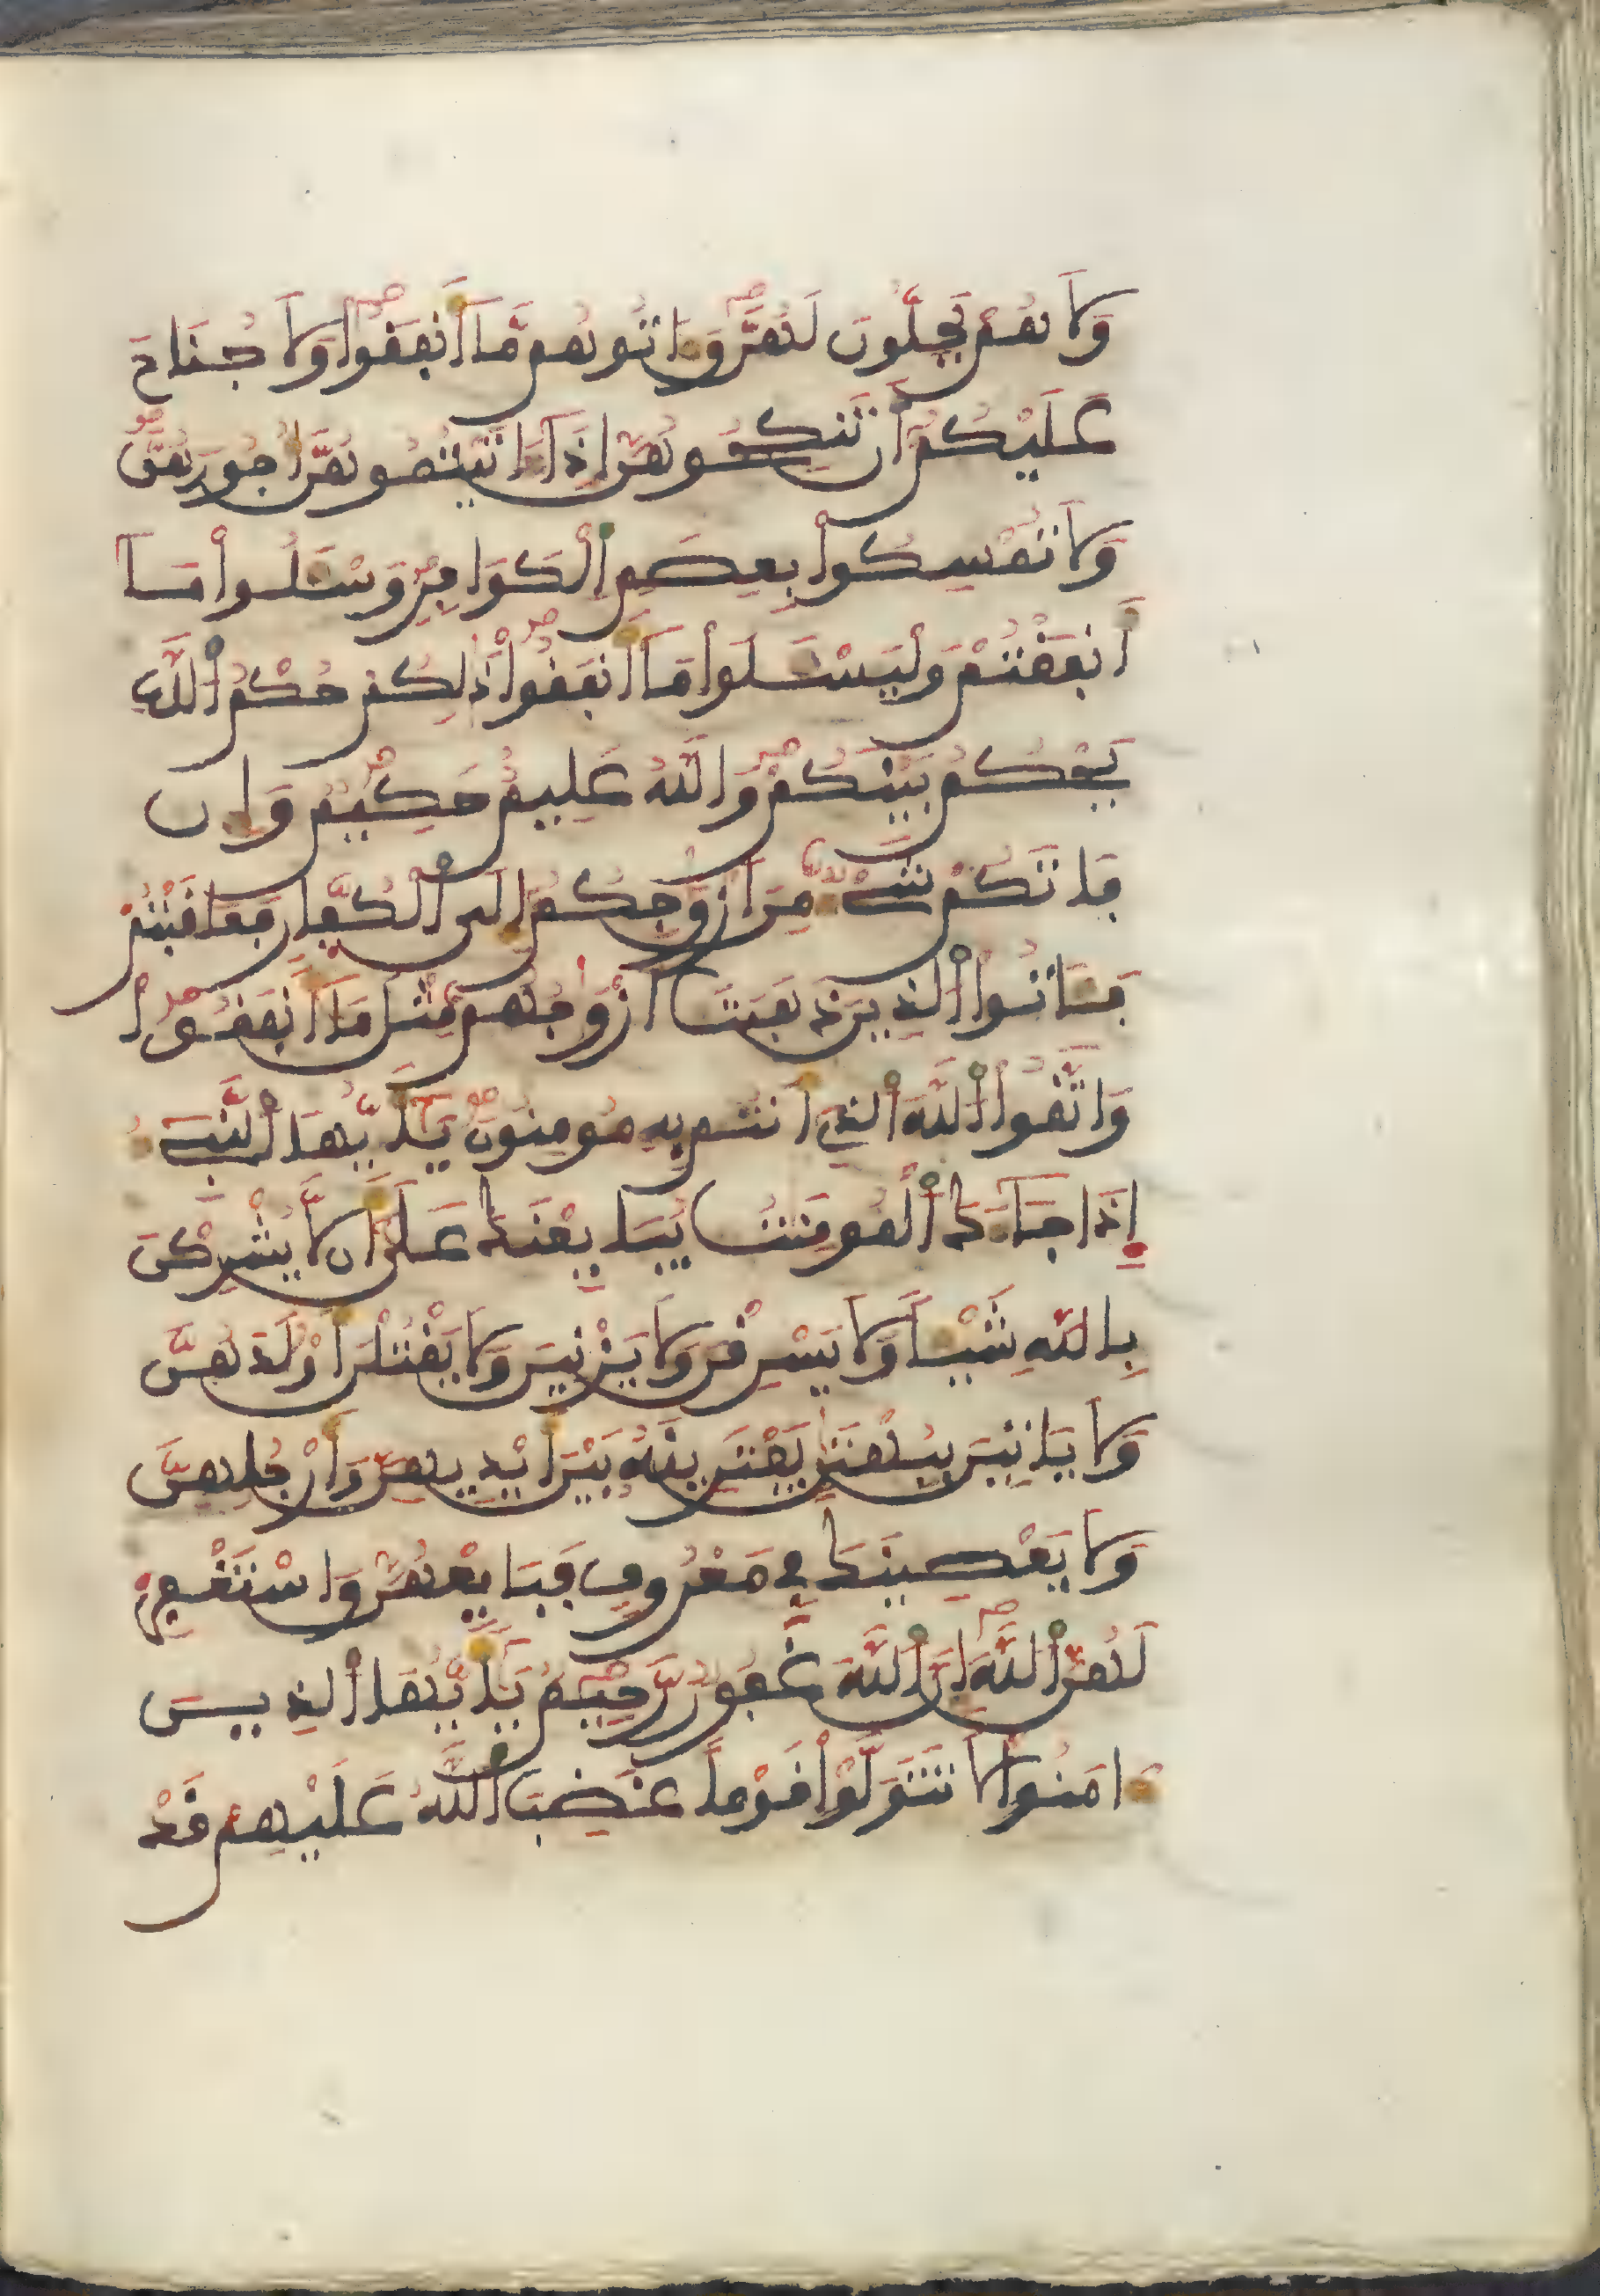 وَلَا هُمْ يَحِلُّونَ لَهُنَّ وَءَاتُوهُم مَّا أَنفَقُوا وَلَا جُنَاحَ
عَلَيْكُمُ أَن تَنكِحُوهُنَّ إِذَا ءَاتَيْتُمُوهُنَّ أُجُورَهُنَّ
وَلَا تُمْسِكُوا بِعِصَمِ الْكَوَافِرِ وَسْـَٔلُوا مَا
أَنفَقْتُمْ وَلْيَسْـَٔلُوا مَا أَنفَقُوا ذَٰلِكُمْ حُكْمُ اللَّهِ
يَحْكُمُ بَيْنَكُمْ وَاللَّهُ عَلِيمٌ حَكِيمٌ وَإِن
فَاتَكُمْ شَيْءٌ مِّنَ أَزْوَٰجِكُمُ إِلَى الْكُفَّارِ فَعَاقَبْتُمْ
فَـَٔاتُوا الَّذِينَ ذَهَبَتَ أَزْوَٰجُهُم مِّثْلَ مَا أَنفَقُوا
وَاتَّقُوا اللَّهَ الَّذِي أَنتُم بِهِ مُومِنُونَ يَٰأَيُّهَا النَّبِيءُ
إِذَا جَاءَكَ الْمُومِنَٰتُ يُبَايِعْنَكَ عَلَىٰ أَن لَّا يُشْرِكْنَ
بِاللَّهِ شَيْـًٔا وَلَا يَسْرِقْنَ وَلَا يَزْنِينَ وَلَا يَقْتُلْنَ أَوْلَٰدَهُنَّ
وَلَا يَاتِينَ بِبُهْتَٰنٍ يَفْتَرِينَهُ بَيْنَ أَيْدِيهِنَّ وَأَرْجُلِهِنَّ
وَلَا يَعْصِينَكَ فِي مَعْرُوفٍ فَبَايِعْهُنَّ وَاسْتَغْفِرْ
لَهُنَّ اللَّهَ إِنَّ اللَّهَ غَفُورٌ رَّحِيمٌ يَٰأَيُّهَا الَّذِينَ
ءَامَنُوا لَا تَتَوَلَّوْا قَوْمًا غَضِبَ اللَّهُ عَلَيْهِمْ قَدْ